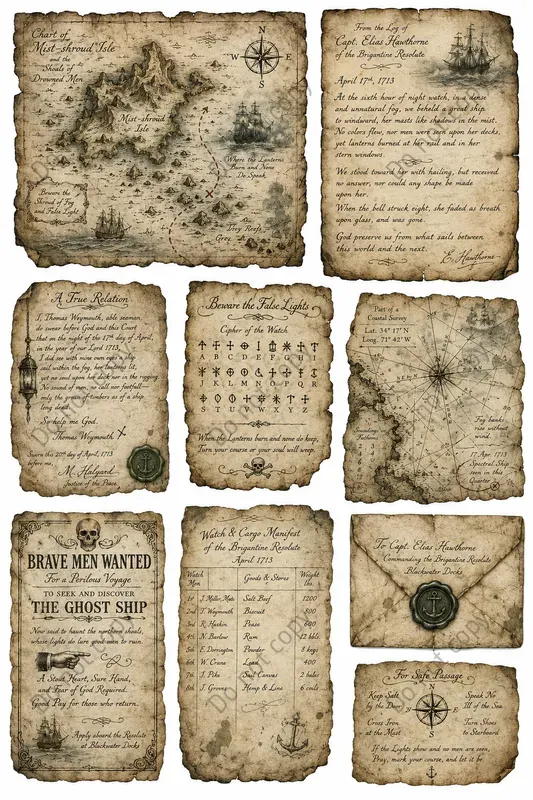 Chart of
Mist-shroud Isle
and the
Shoals of
Drowned Men
N
W
E
S
Mist-shroud
Isle
Where the Lanterns
Burn and None
Do Speak
Beware the
Shroud of Fog
and False Light
Grey
From the Log of
Capt. Elias Hawthorne
of the Brigantine Resolute
April 17th, 1713
At the sixth hour of night watch, in a dense
and unnatural fog, we beheld a great ship
to windward, her masts like shadows in the mist.
No colors flew, nor men were seen upon her decks,
yet lanterns burned at her rail and in her
stern windows.
We stood toward her with hailing, but received
no answer, nor could any shape be made
upon her.
When the bell struck eight, she faded as breath
upon glass, and was gone.
God preserve us from what sails between
this world and the next.
E. Hawthorne
A True Relation
I, Thomas Weymouth, able seaman,
do swear before God and this Court
that on the night of the 17th day of April,
in the year of our Lord 1713,
I did see with mine own eyes a ship
sail within the fog, her lanterns lit,
yet no soul upon her deck nor in the rigging.
No sound of men, no call nor footfall—
only the groan of timbers as of a ship
long dead.
So help me God.
Thomas Weymouth X
Sworn this 20th day of April, 1713
before me,
M. Halyard
Justice of the Peace.
Beware the False Lights
Cipher of the Watch
A B C D E F G H I
J K L M N O P Q R
S T U V W X Y Z
When the Lanterns burn and none do keep,
Turn your course or your soul will weep.
Part of a
Coastal Survey
Lat. 34° 17' N
Long. 71° 42' W
Soundings
Fathoms
Fog banks
rise without
wind.
17 Apr. 1713
Spectral Ship
seen in this
Quarter
BRAVE MEN WANTED
For a Perilous Voyage
TO SEEK AND DISCOVER
THE GHOST SHIP
Now said to haunt the northern shoals,
whose lights do lure good men to ruin.
A Stout Heart, Sure Hand,
and Fear of God Required.
Good Pay for those who return.
Apply aboard the Resolute
at Blackwater Docks
Watch & Cargo Manifest
of the Brigantine Resolute
April 1713
Watch Men Goods & Stores Weight lbs.
1st J. Miller, Mate Salt Beef 1200
2nd T. Weymouth Biscuit 800
3rd R. Haskin Pease 600
4th N. Barlow Rum 12 bbls.
5th E. Dorrington Powder 8 kegs
6th W. Crane Lead 400
7th J. Pike Sail Canvas 2 bales
8th J. Groves Hemp & Line 6 coils
To Capt. Elias Hawthorne
Commanding the Brigantine Resolute
Blackwater Docks
For Safe Passage
Keep Salt
by the Door
Cross Iron
at the Mast
N
W
E
S
Speak No
Ill of the Sea
Turn Shoes
to Starboard
If the Lights show and no men are seen,
Pray, mark your course, and let it be.